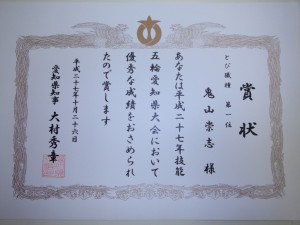 賞状
とび職種 第一位
鬼山崇志 様
あなたは平成二十七年技能
五輪愛知県大会において
優秀な成績をおさめられ
たので賞します
平成二十七年十月二十六日
愛知県知事 大村秀章